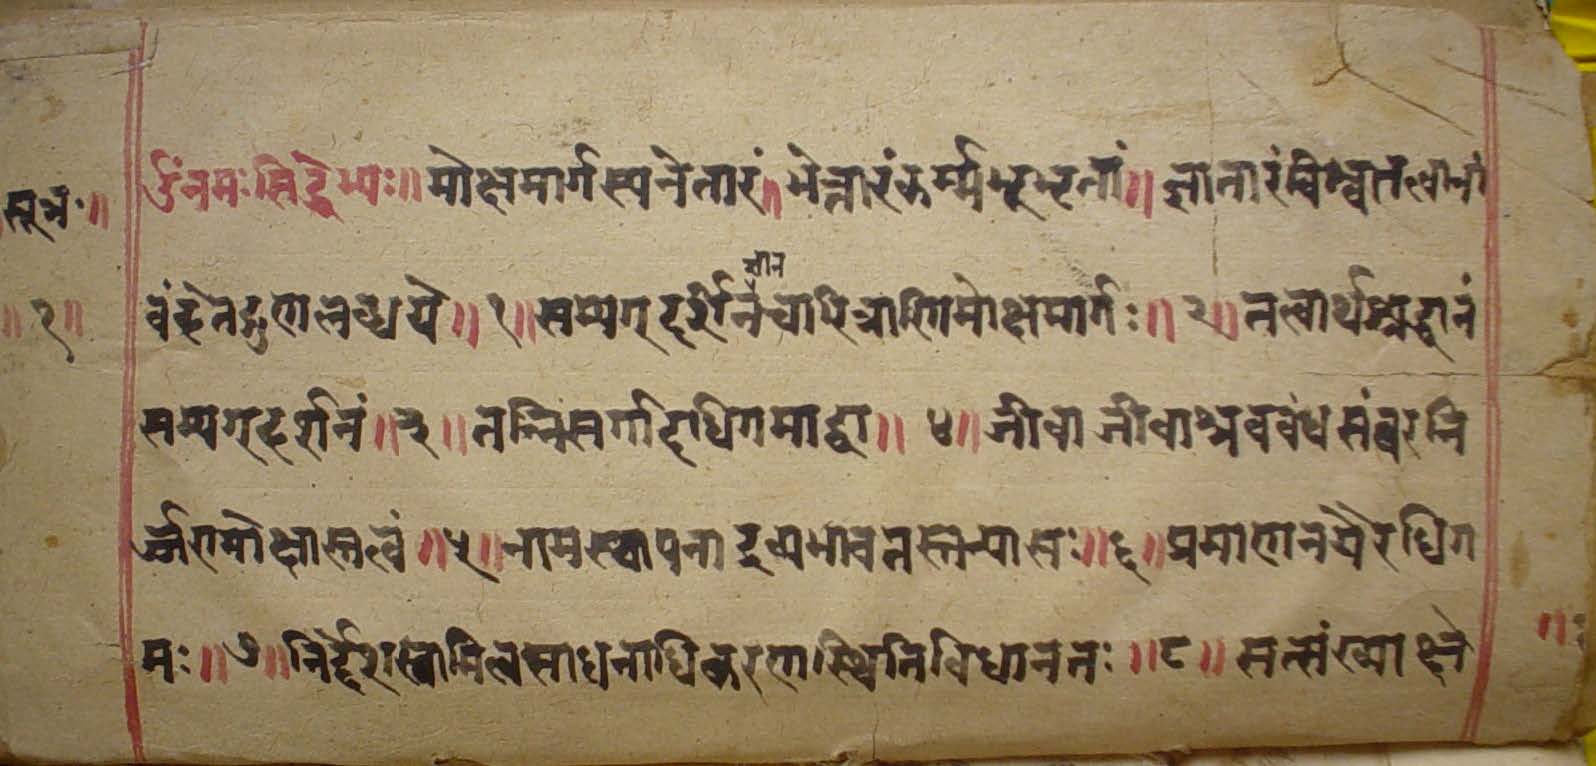 सूत्रं॰॥
॥१॥
ॐनमःसिद्धेभ्यः॥मोक्षमार्गस्यनेतारं॥भेत्तारंकर्म्मभूभृतां॥ज्ञातारंविश्वतत्वानां
वंदेतद्गुणलब्धये॥१॥सम्यग्दर्शनज्ञानचारित्राणिमोक्षमार्गः॥२॥तत्वार्थश्रद्धानं
सम्यग्दर्शनं॥३॥तन्निसर्गादधिगमाद्वा॥४॥जीवाजीवाश्रवबंधसंवरनि
र्ज्जरामोक्षास्तत्वं॥५॥नामस्थापनाद्रव्यभावतस्तन्यासः॥६॥प्रमाणनयैरधिग
मः॥७॥निर्द्देशस्वामित्वसाधनाधिकरणस्थितिविधानतः॥८॥सत्संख्याक्षे